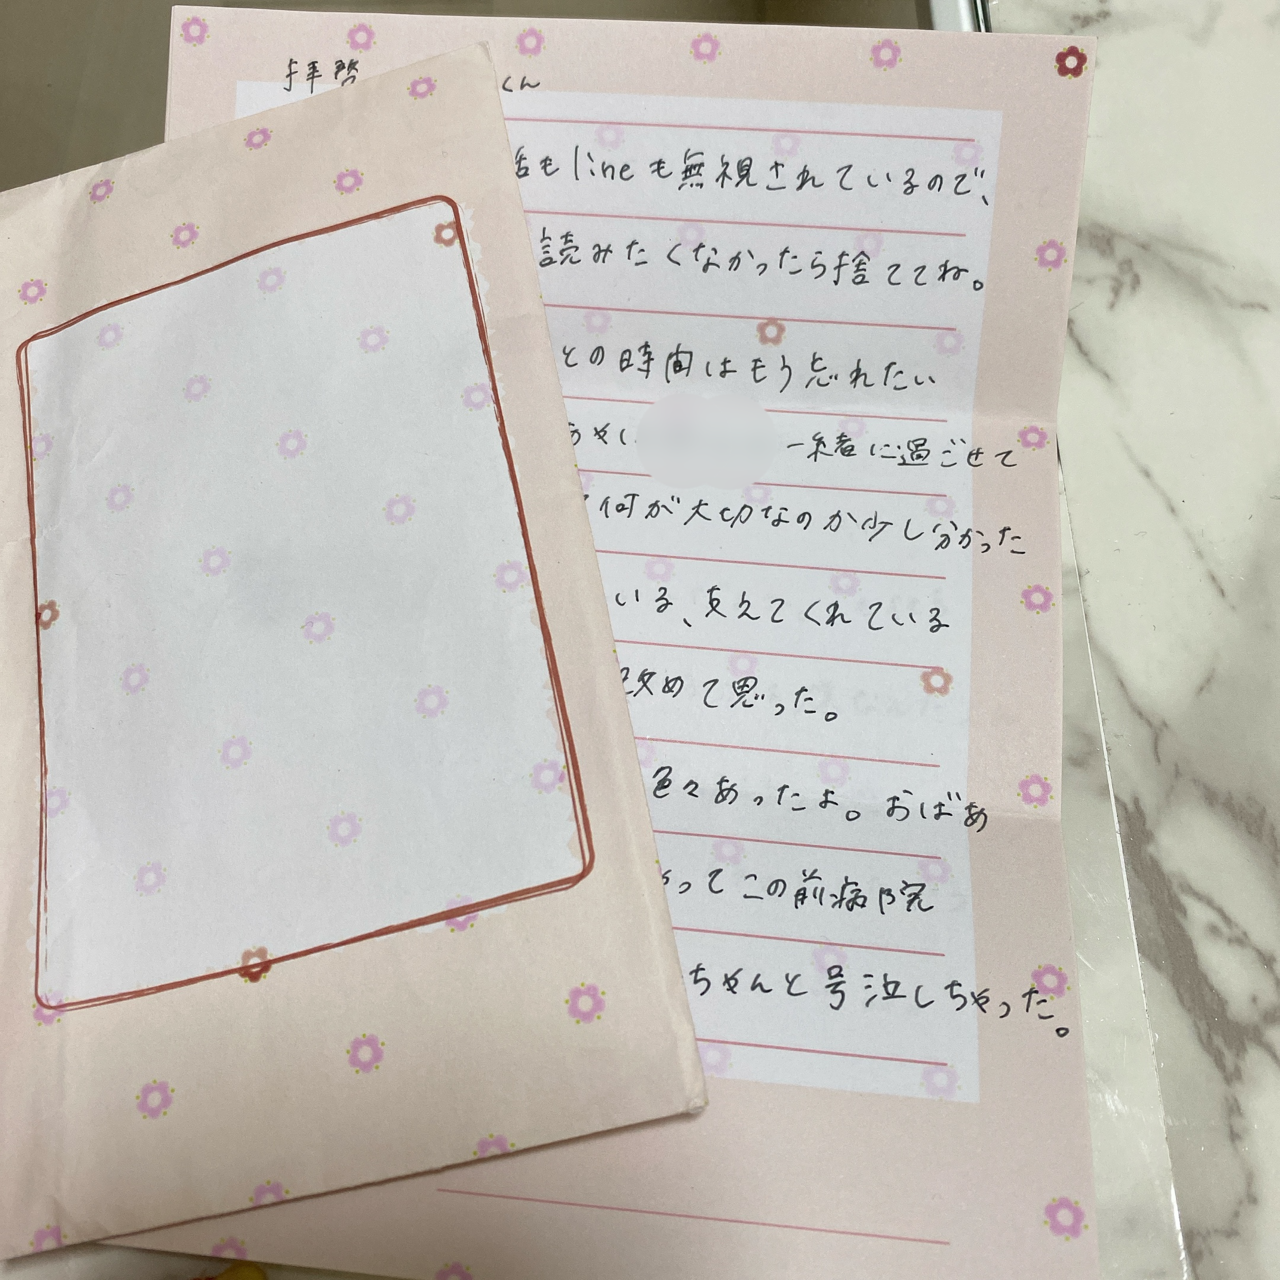 拝啓 くん
もlineも無視されているので、
読みたくなかったら捨ててね。
との時間はもう忘れたい
一緒に過ごせて
何が大切なのか少し分かった
いる、支えてくれている
改めて思った。
色々あったよ。おばあ
ってこの前病院
ちゃんと号泣しちゃった。